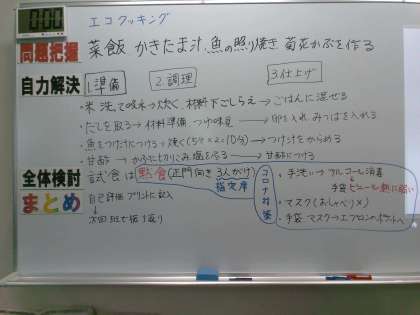 0:00
エコクッキング
問題把握
菜飯 かきたま汁、魚の照り焼き 菊花かぶを作る
自力解決
1.準備 2.調理 3.仕上げ
・米 洗って吸水→炊く、材料下ごしらえ→ごはんに混ぜる
・だしを取る→材料準備 つゆ味見→卵を入れみつばを入れる
・魚をつけ汁につける→焼く(5分×2=10分)→つけ汁をからめる
・甘酢→かぶに切りこみ、塩をふる→甘酢につける
全体検討
試食は黙食(正門向き 3人がけ)
指定席
まとめ
自己評価 プリントに記入
↓
次回 班で振り返り
コロナ対策
・手洗い→アルコール消毒
手袋 ビニール 熱に弱い
・マスク(おしゃべり×)
・手袋 マスク→エプロンのポケットへ